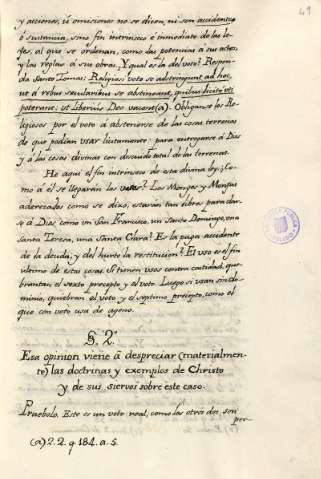 49
y acciones, ú omisiones no se dicen, ni son accidentes
ó sustancia, sino fin intrinseco é inmediato de las le-
yes, al que se ordenan, como las potencias á sus actos,
y las reglas á sus obras. Y qual es la del voto? Respon-
da Santo Tomas: Religiosi voto se adstringunt ad hoc,
ut á rebus saecularibus se abstineant, quibus licite uti
poterant: ut liberius Deo vacent (a). Obliganse los Re-
ligiosos por el voto á abstenerse de las cosas terrenas
de que podian usar licitamente: para entregarse á Dios
y á las cosas divinas con descuido total de las terrenas.
He aqui el fin intrinseco de esta divina ley: ¿Co-
mo á él se llegarán los votos? Los Monges y Monjas
aderezados como se dixo, estarán tan libres para dar-
se á Dios, como un San Francisco, un Santo Domingo, una
Santa Teresa, una Santa Clara? Es la paga accidente
de la deuda, y del hurto la restitucion? El uso es el fin
ultimo de estas cosas. Si tienen usos contra castidad, que-
brantan el sexto precepto, y el voto. Luego si usan sin do-
minio, quiebran el voto y el septimo precepto, como el
que con voto usa de ageno.
§. 2.
Esa opinion viene á despreciar (materialmen-
te) las doctrinas y exemplos de Christo
y de sus siervos sobre este caso.
Pruebolo. Este es un voto real, como los otros dos, son
per-
(a) 2. 2. q 184. a. 5.